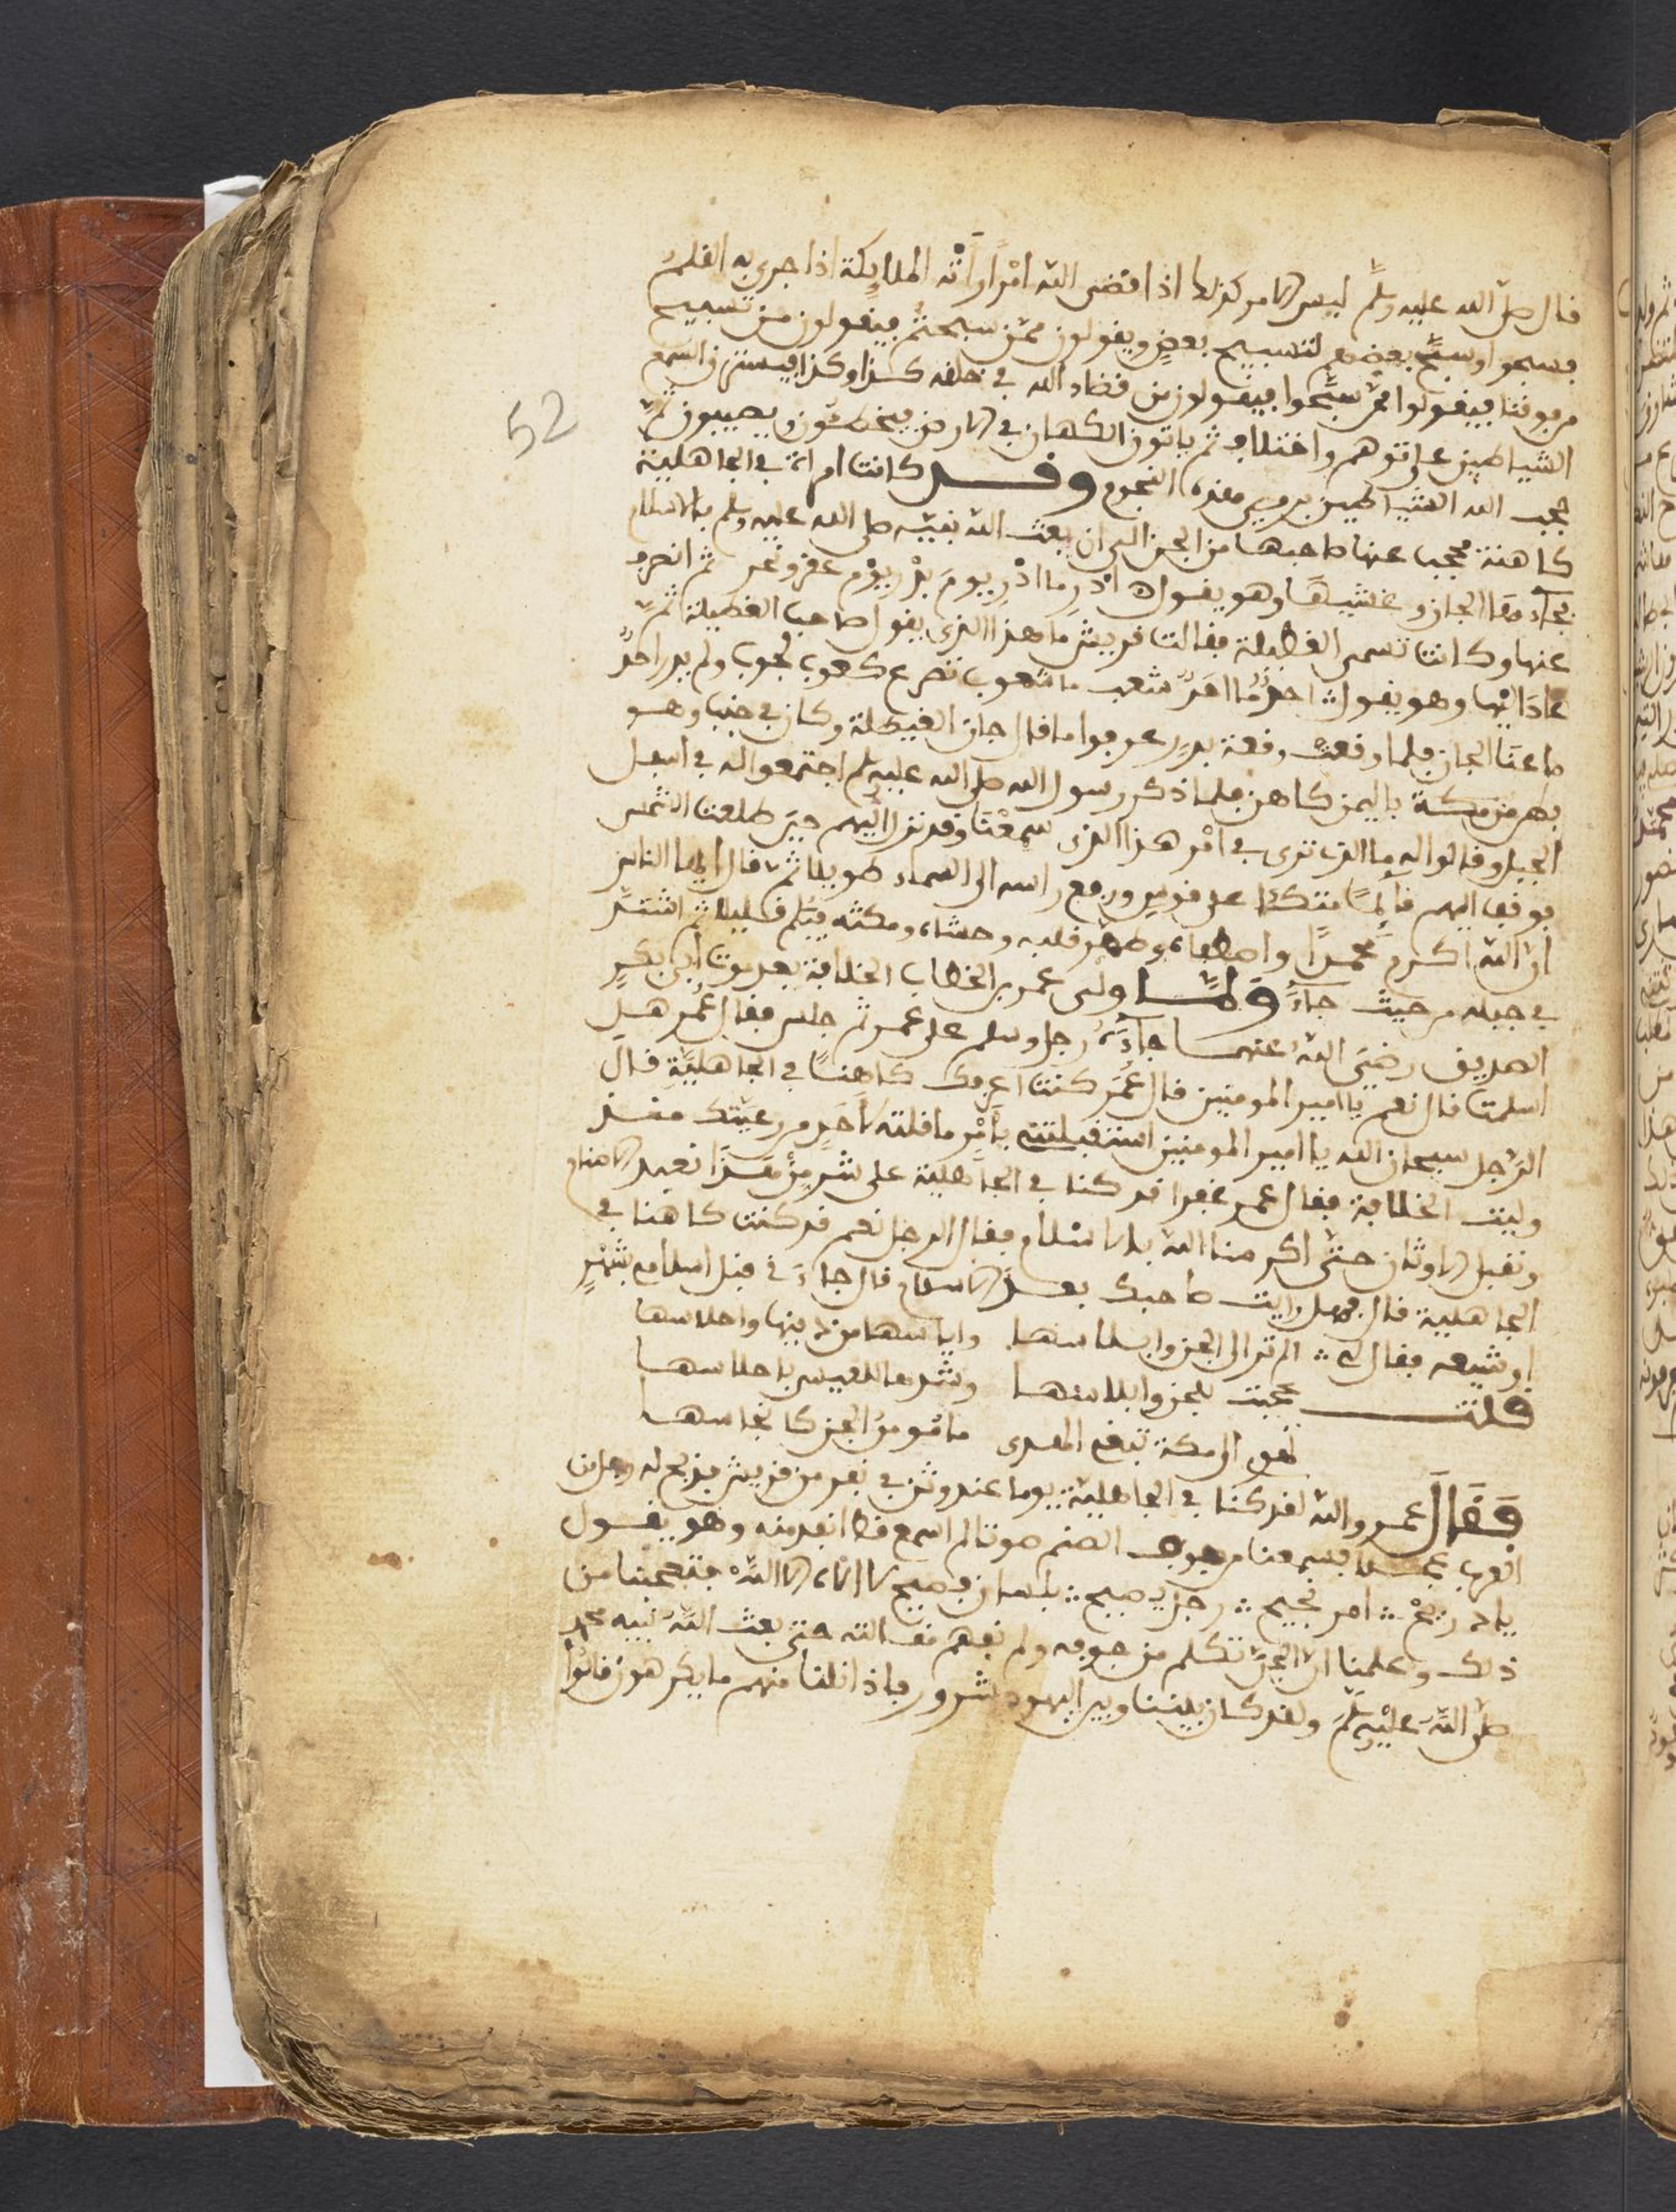 قال صلى الله عليه وسلم ليس الامر كذلك اذا قضى الله امْرًا رَأتْه الملايكة اذا جرى به القلم
فسبحوا وسبّح بعضهم لتسبيح بعضٍ ويقولون ممّن سبحتمُ فيقولون من تسبيح
من فوقنا فيقولوا ممّ سبَّحوا فيقولون من قضاء الله في خلقه كذا وكذا فيسترق السمع
52
الشياطين على توهم واختلاف ثم ياتون الكهان في الارض فيخطئون ويصيبون ثمّ
حجب الله الشياطين بهذه النجوم وقد كانت امراة في الجاهلية
كاهنة فحجب عنها صاحبها من الجن الى ان بعث الله نبيّه صلى الله عليه وسلم بالاسلام
فجاءها الجان وغشيها وهو يقول ادْرِ ما ادْرِ يومَ بدْر يوْم عقر ونحر ثم انصرف
عنها وكانت تسمى الغيطلة فقالت قريش ما هذا الذى يقول صاحب الغيطلة ثمّ
عادَ اليْها وهو يقول شعب ما شعوب تصرع كعوب لجوب ولم يدر احدٌ
ما عنَا الجان فلما وقعت وقعة بدرٍ عرفوا ما قال جان الغيطلة وكان في جنب وهو
بطن من مكة باليمن كاهن فلما ذكر رسول الله صلى الله عليه وسلم اجتمعوا له في اسفل
الجبل وقالوا له ما الذى ترى في امْر هذا الذى سمعْنَا وقد نزل اليْهم حين طلعت الشمس
فوقف اليهم قايمًا متكئا على قوسٍ ورفع راسه الى السماء طويلا ثمّ قال ايها الناس
انّ الله اكرم محمّدًا واصطفاه وطهّر قلبه وحشاه ومكثه فيكم قليلا ثم اشتدّ
في جبله من حيث جاءَ وَلمّا ولى عمر بن الخطاب الخلافة بعد موت ابي بكرٍ
الصديق رضيَ اللهُ عنهما جاءَهُ رجل وسلم على عمر ثم جلس فقال عُمر هل
اسلمتَ قال نعم يا امير المومنين قال عُمَر كنتَ اعرفك كاهنًا في الجاهليَّة قال
الرّجل سبحان الله يا امير المومنين استقبلتني بأمْرٍ ما قلته لاحَدٍ من رعيّتك منذ
وليت الخلافة فقال عمر غفرا قد كنا في الجاهلية على شرٍ منْ هَذَا نعبد الاصنام
ونقبل الاوثان حتّى اكرمنا الله بالاسْلام فقال الرجل نعم قد كنت كاهنا في
الجاهلية قال فهل رايت صاحبك بعدَ الاسلام قال جاءَني قبل اسلامي بشهْرٍ
او شيعه فقال لي ∴ الم تر الى الجن وابلاسها واياسها من دينها واحلاسها
قلت عجبت للجن وابلاسها وشدها للعيس باحلاسها
تهوى الى مكة تبغي الهدى ما مُومنُ الجن كانجاسها
فَقَالَ عمر والله لقد كنا في الجاهليّة يوما عند وثن في نفر من قريش فذبح له رجل من
العرب عجلا فسمعنا من جوف الصنم صوتا لم اسمع قط انفد منه وهو يقول
يال ذريحْ ∴ امر نجيح ∴ رجل يصيح ∴ بلسان فصيح لا الاه الا اللّه فتعجّبنا من
ذلك وعلمنا انّ الجنّ تتكلم من جوفه ولم نفهم مقالته حتى بعث اللّه نبيه محمد
صلى اللّه عليْه وسلم ولقد كان بيننا وبين اليهود شرور فاذا نلنا منهم ما يكرهون قالوُا